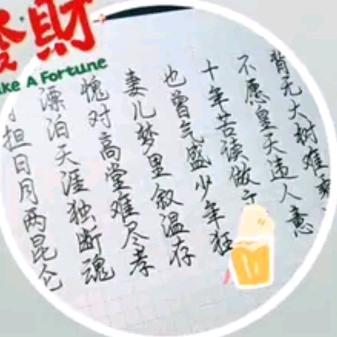 發財
ke A Fortune
背无大树难
不愿皇天违人意
十年苦读做
也曾气盛少年狂
妻儿梦里叙温存
愧对高堂难尽孝
漂泊天涯独断魂
担日月两昆仑